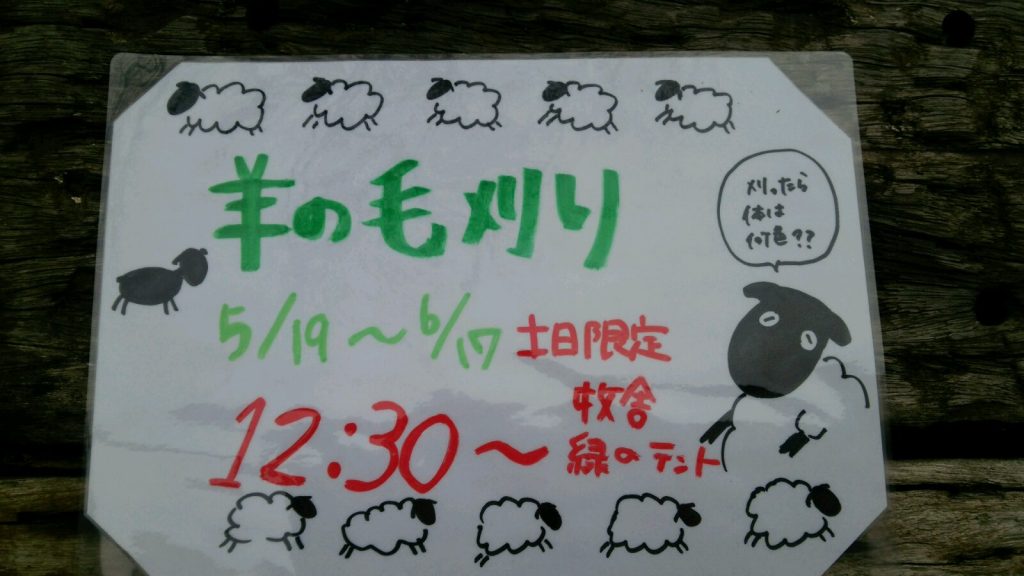 羊の毛刈り
刈ったら
体は
何色??
5/19～6/17 土日限定
12:30～
牧舎
緑のテント